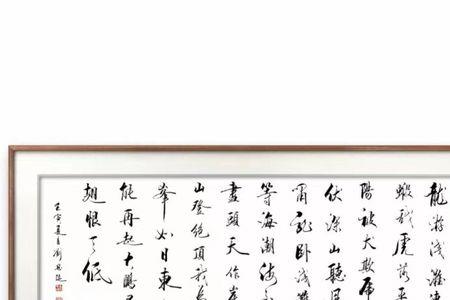 龍游淺灘
蝦戲虎落平
陽被犬欺虎
伏深山聽風
嘯龍卧淺灘
等海潮海
盡頭天作岸
山登絕頂我為
峯如日東
能再起大鵬
翅恨天低
壬寅夏月劉